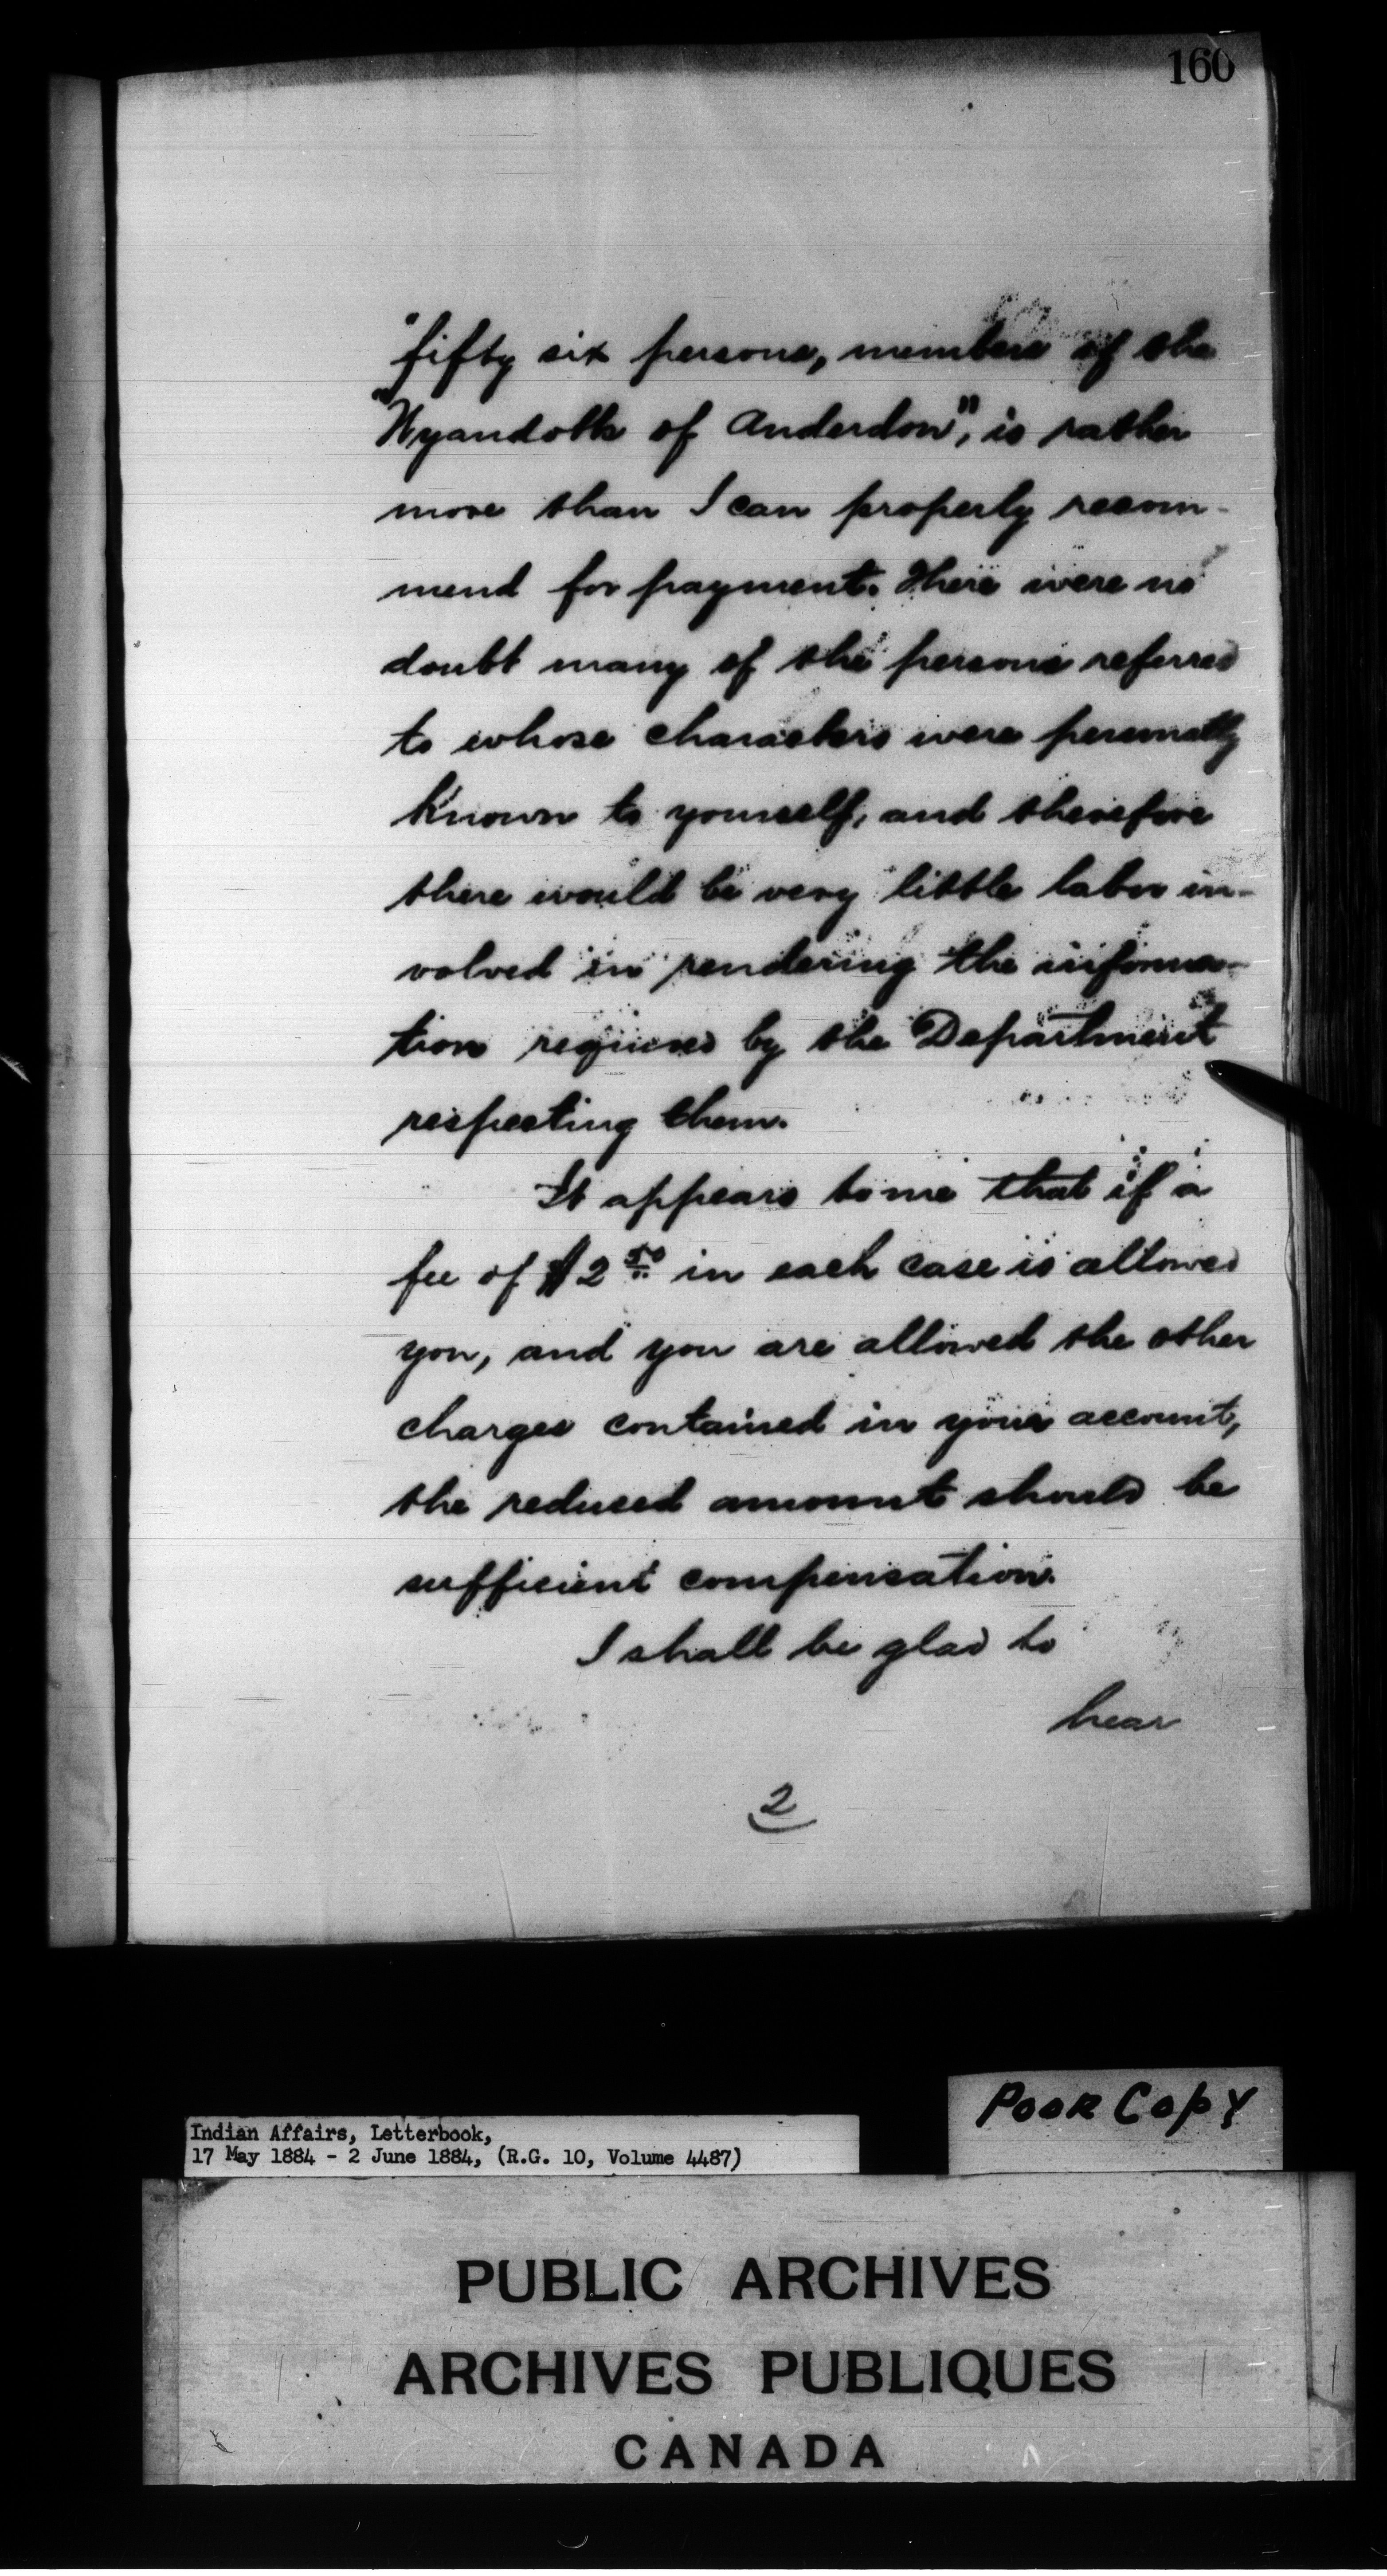 160
"fifty six persons, members of the
"Wyandotts of Anderdon", is rather
more than I can properly recom-
mend for payment. There were no
doubt many of the persons referred
to whose characters were personally
known to yourself, and therefore
there would be very little labor in-
volved in rendering the informa-
tion required by the Department
respecting them.
It appears to me that if a
fee of $2.50 in each case is allowed
you, and you are allowed the other
charges contained in your account,
the reduced amount should be
sufficient compensation.
I shall be glad to
hear
2
Poor Copy
Indian Affairs, Letterbook,
17 May 1884 - 2 June 1884, (R.G. 10, Volume 4487)
PUBLIC ARCHIVES
ARCHIVES PUBLIQUES
CANADA